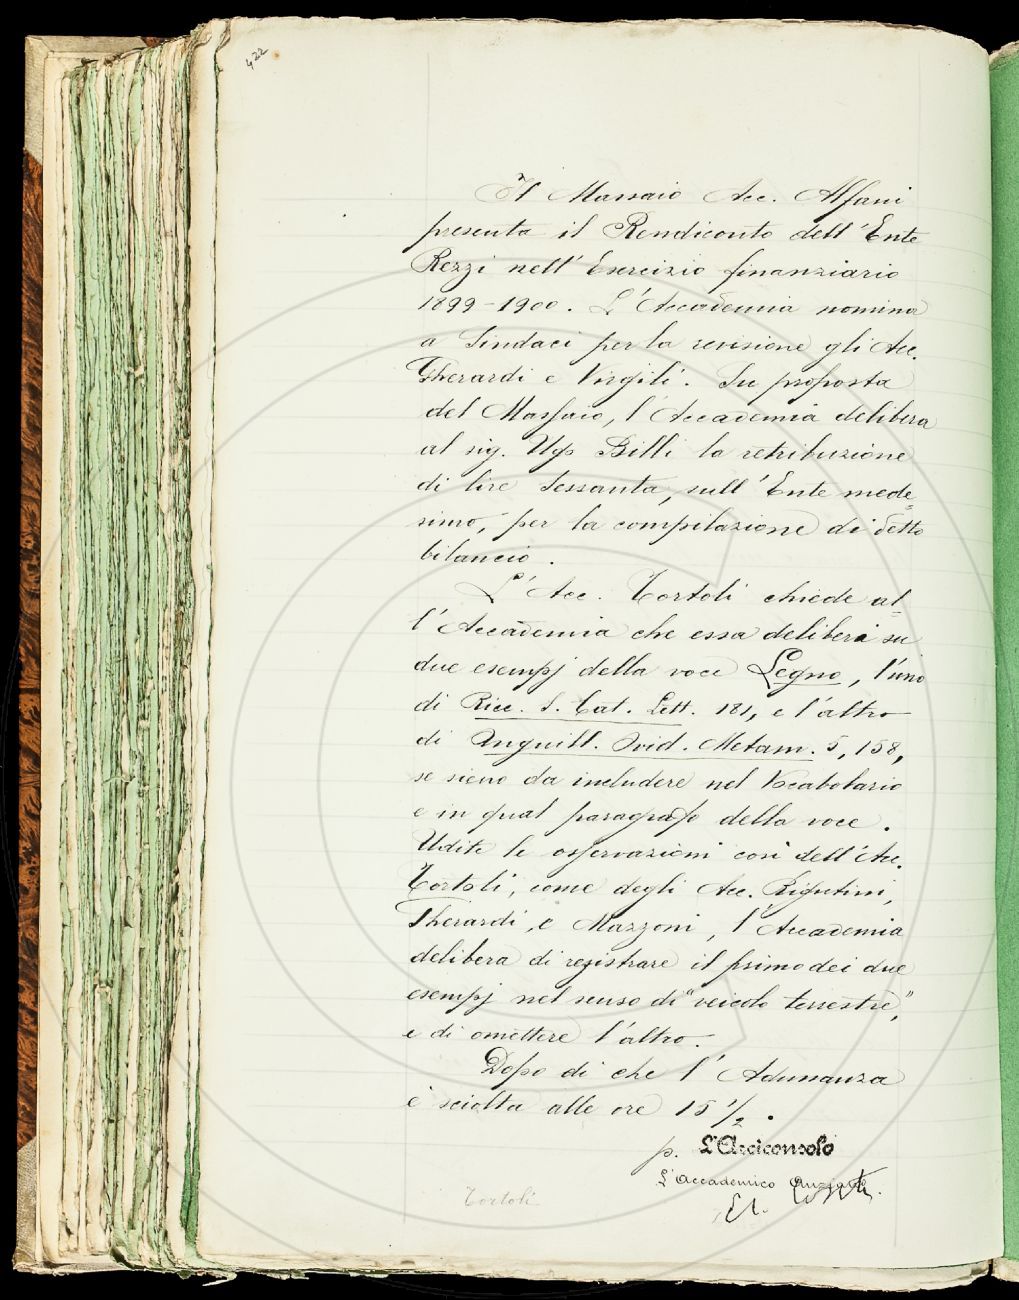 422
Il Massaio Acc. Alfani
presenta il Rendiconto dell'Ente
Rezzi nell'Esercizio finanziario
1899-1900. L'Accademia nomina
a Sindaci per la revisione gli Acc.
Gherardi e Virgili. Su proposta
del Massaio, l'Accademia delibera
al sig. Ugo Billi la retribuzione
di lire sessanta, sull'Ente mede=
simo, per la compilazione di detto
bilancio.
L'Acc. Tortoli chiede al-
l'Accademia che essa deliberi su
due esempj della voce Legno, l'uno
di Ricc. S. Cat. Lett. 181, e l'altro
di Anguill. Ovid. Metam. 5, 158,
se sieno da includere nel Vocabolario
e in qual paragrafo della voce.
Udite le osservazioni così dell'Acc.
Tortoli, come degli Acc. Rigutini,
Gherardi, e Mazzoni, l'Accademia
delibera di registrare il primo dei due
esempj nel senso di "veicolo terrestre",
e di omettere l'altro.
Dopo di che l'Adunanza
è sciolta alle ore 15 1/2.
p. L'Arciconsolo
L'Accademico Anziano
Tortoli